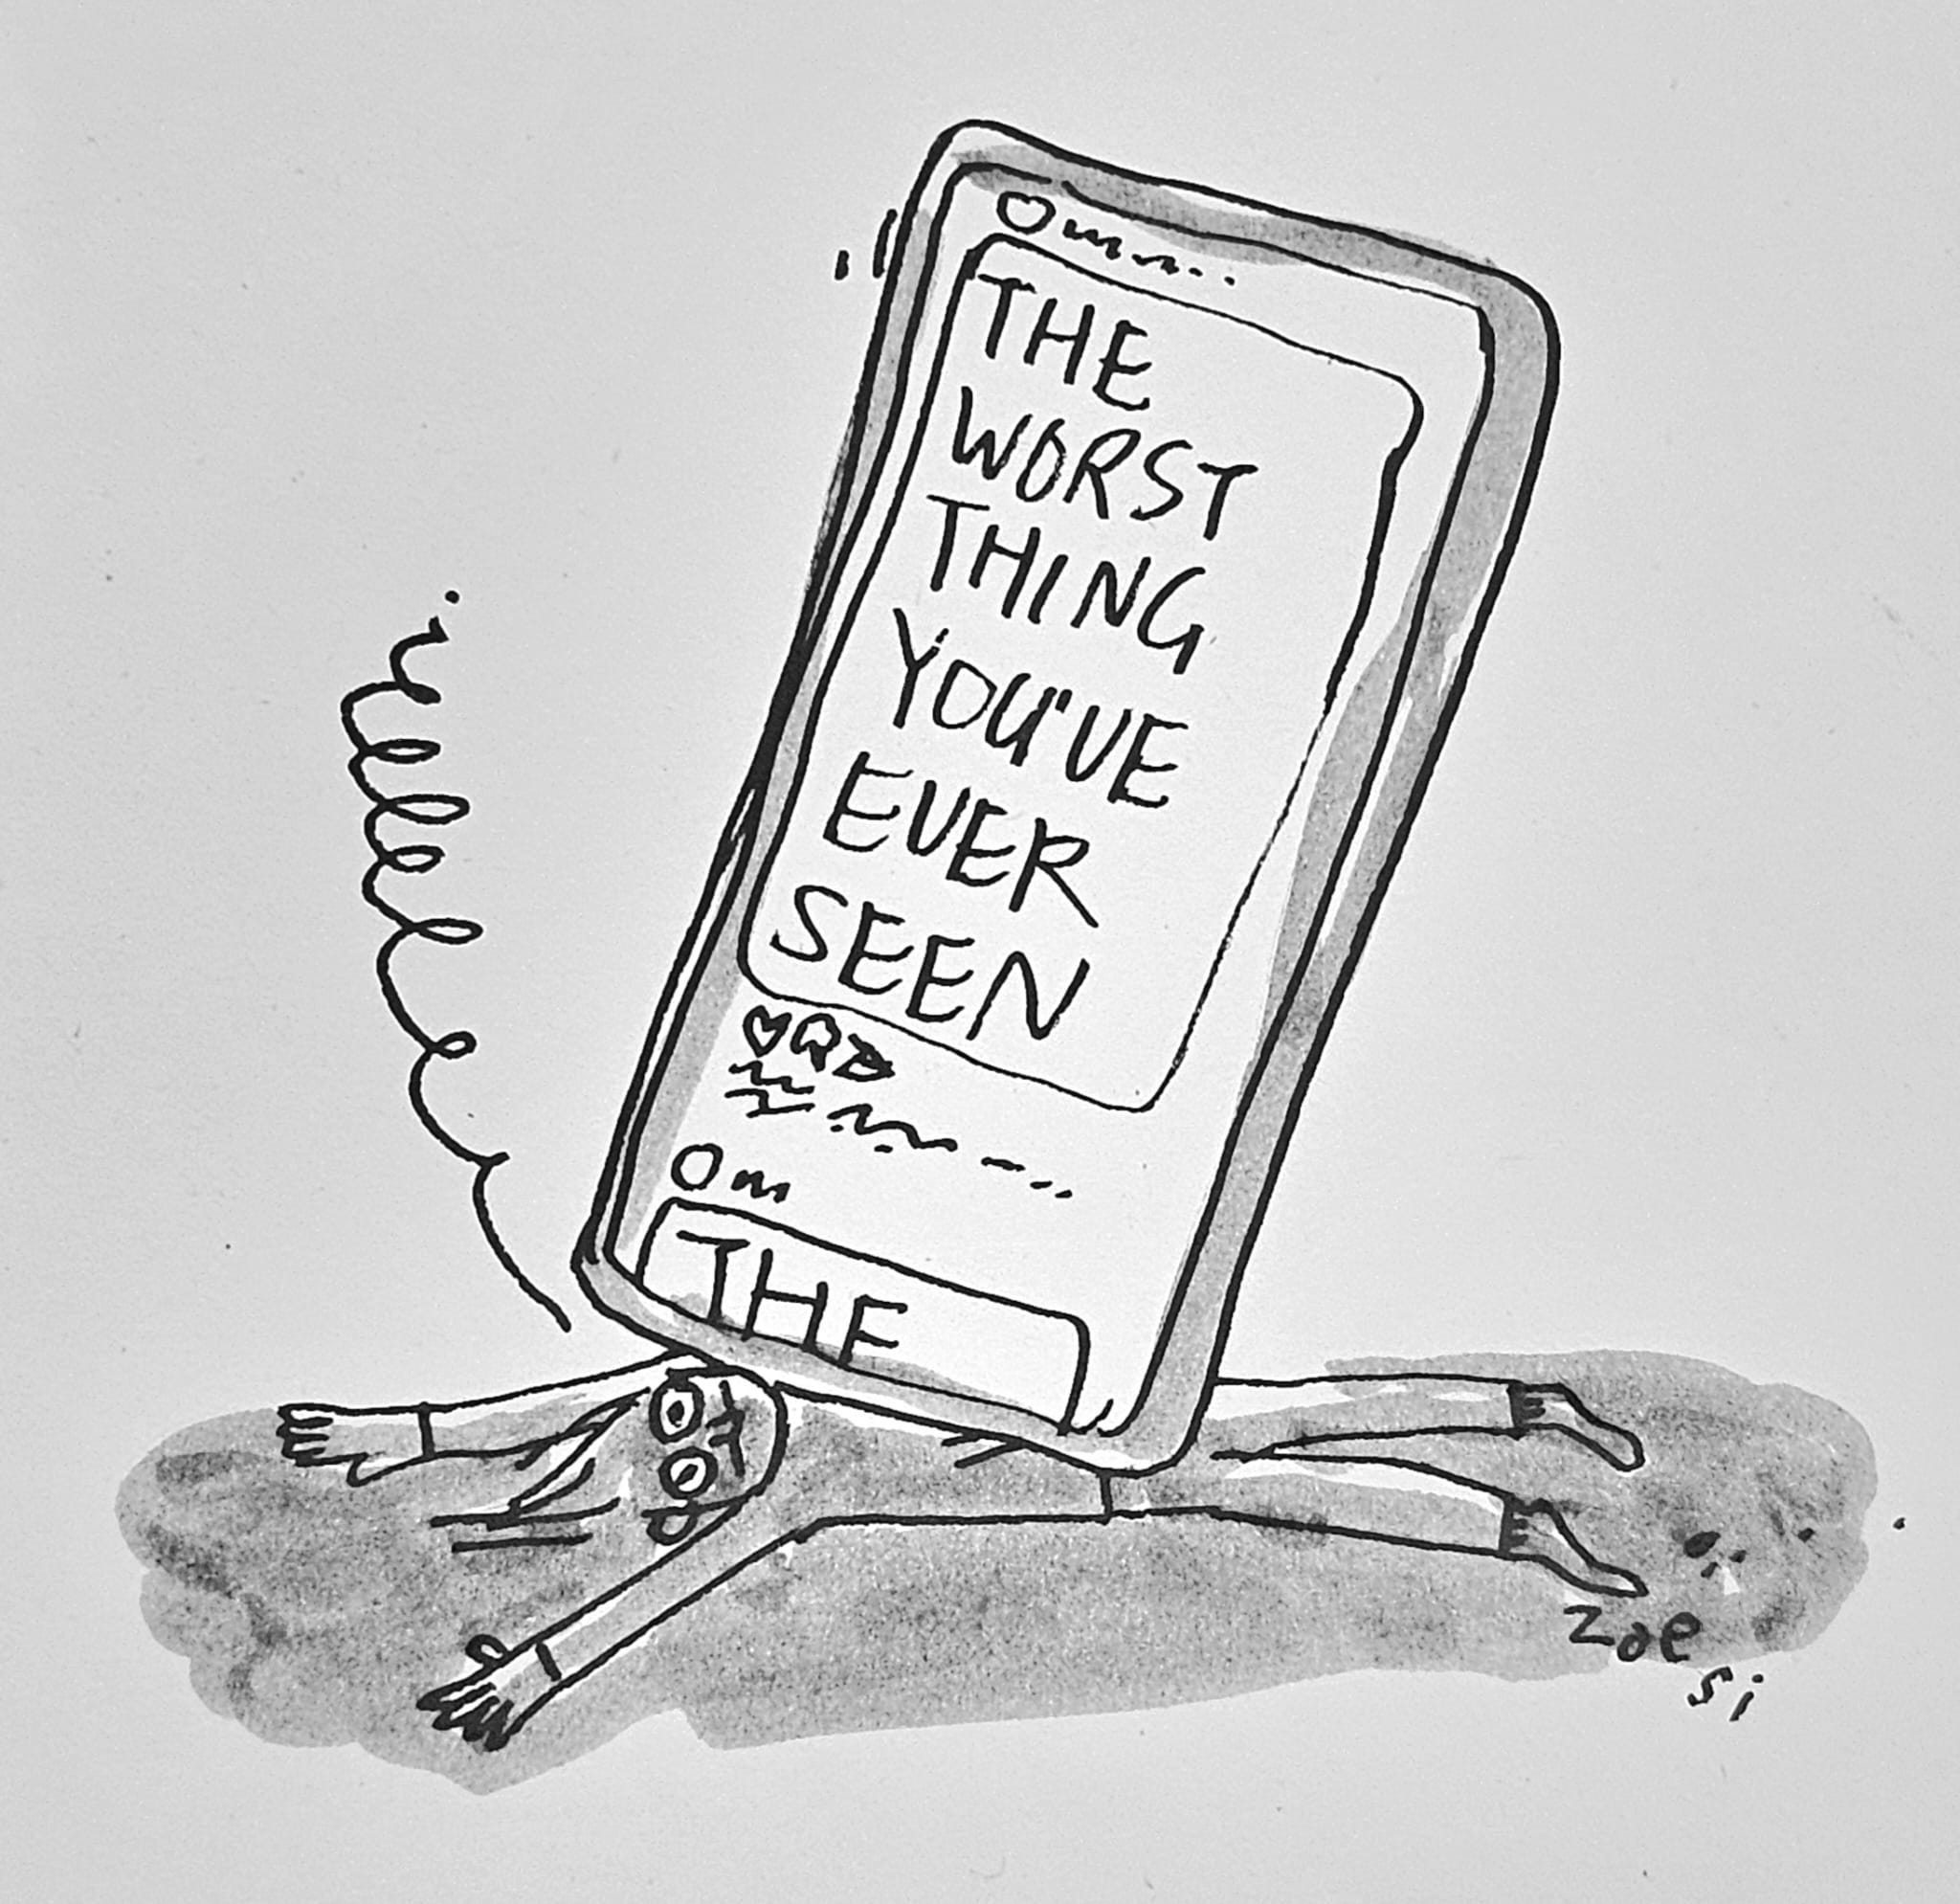 THE
WORST
THING
YOU'VE
EVER
SEEN
THE
zoe
si